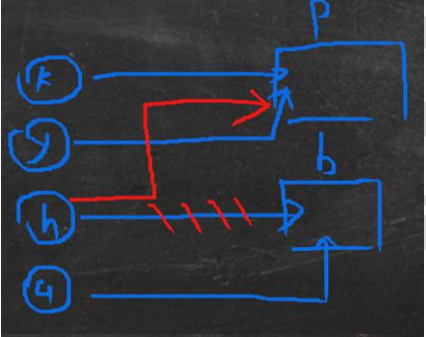 P
k
y
b
h
9